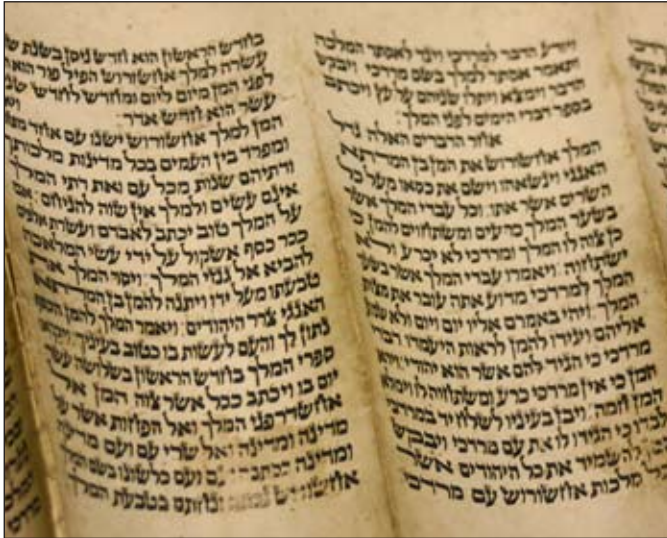 ויודע הדבר למרדכי ויגד לאסתר המלכה
ותאמר אסתר למלך בשם מרדכי ויבקש
הדבר וימצא ויתלו שניהם על עץ ויכתב
בספר דברי הימים לפני המלך
אחר הדברים האלה גדל
המלך אחשורוש את המן בן המדתא
האגגי וינשאהו וישם את כסאו מעל כל
השרים אשר אתו וכל עבדי המלך אשר
בשער המלך כרעים ומשתחוים להמן כי
כן צוה לו המלך ומרדכי לא יכרע ולא
ישתחוה ויאמרו עבדי המלך אשר בשער
המלך למרדכי מדוע אתה עובר את מצות
המלך ויהי באמרם אליו יום ויום ולא שמע
אליהם ויגידו להמן לראות היעמדו דברי
מרדכי כי הגיד להם אשר הוא יהודי וירא
המן כי אין מרדכי כרע ומשתחוה לו וימלא
המן חמה ויבז בעיניו לשלח יד במרדכי
לבדו כי הגידו לו את עם מרדכי ויבקש
להשמיד את כל היהודים אשר
מלכות אחשורוש עם מרדכי
בחדש הראשון הוא חדש ניסן בשנת
עשרה למלך אחשורוש הפיל פור הוא
לפני המן מיום ליום ומחדש לחדש
עשר הוא חדש אדר
המן למלך אחשורוש ישנו עם אחד
ומפרד בין העמים בכל מדינות מלכותך
ודתיהם שנות מכל עם ואת דתי המלך
אינם עשים ולמלך אין שוה להניחם אם
על המלך טוב יכתב לאבדם ועשרת אלפים
ככר כסף אשקול על ידי עשי המלאכה
להביא אל גנזי המלך ויסר המלך את
טבעתו מעל ידו ויתנה להמן בן המדתא
האגגי צרר היהודים ויאמר המלך להמן הכסף
נתון לך והעם לעשות בו כטוב בעיניך ויקראו
ספרי המלך בחדש הראשון בשלושה עשר
יום בו ויכתב ככל אשר צוה המן אל
אחשדרפני המלך ואל הפחות אשר על
מדינה ומדינה ואל שרי עם ועם מדינה
ומדינה ככתבה ועם ועם כלשונו בשם המלך
אחשורוש נכתב ונחתם בטבעת המלך